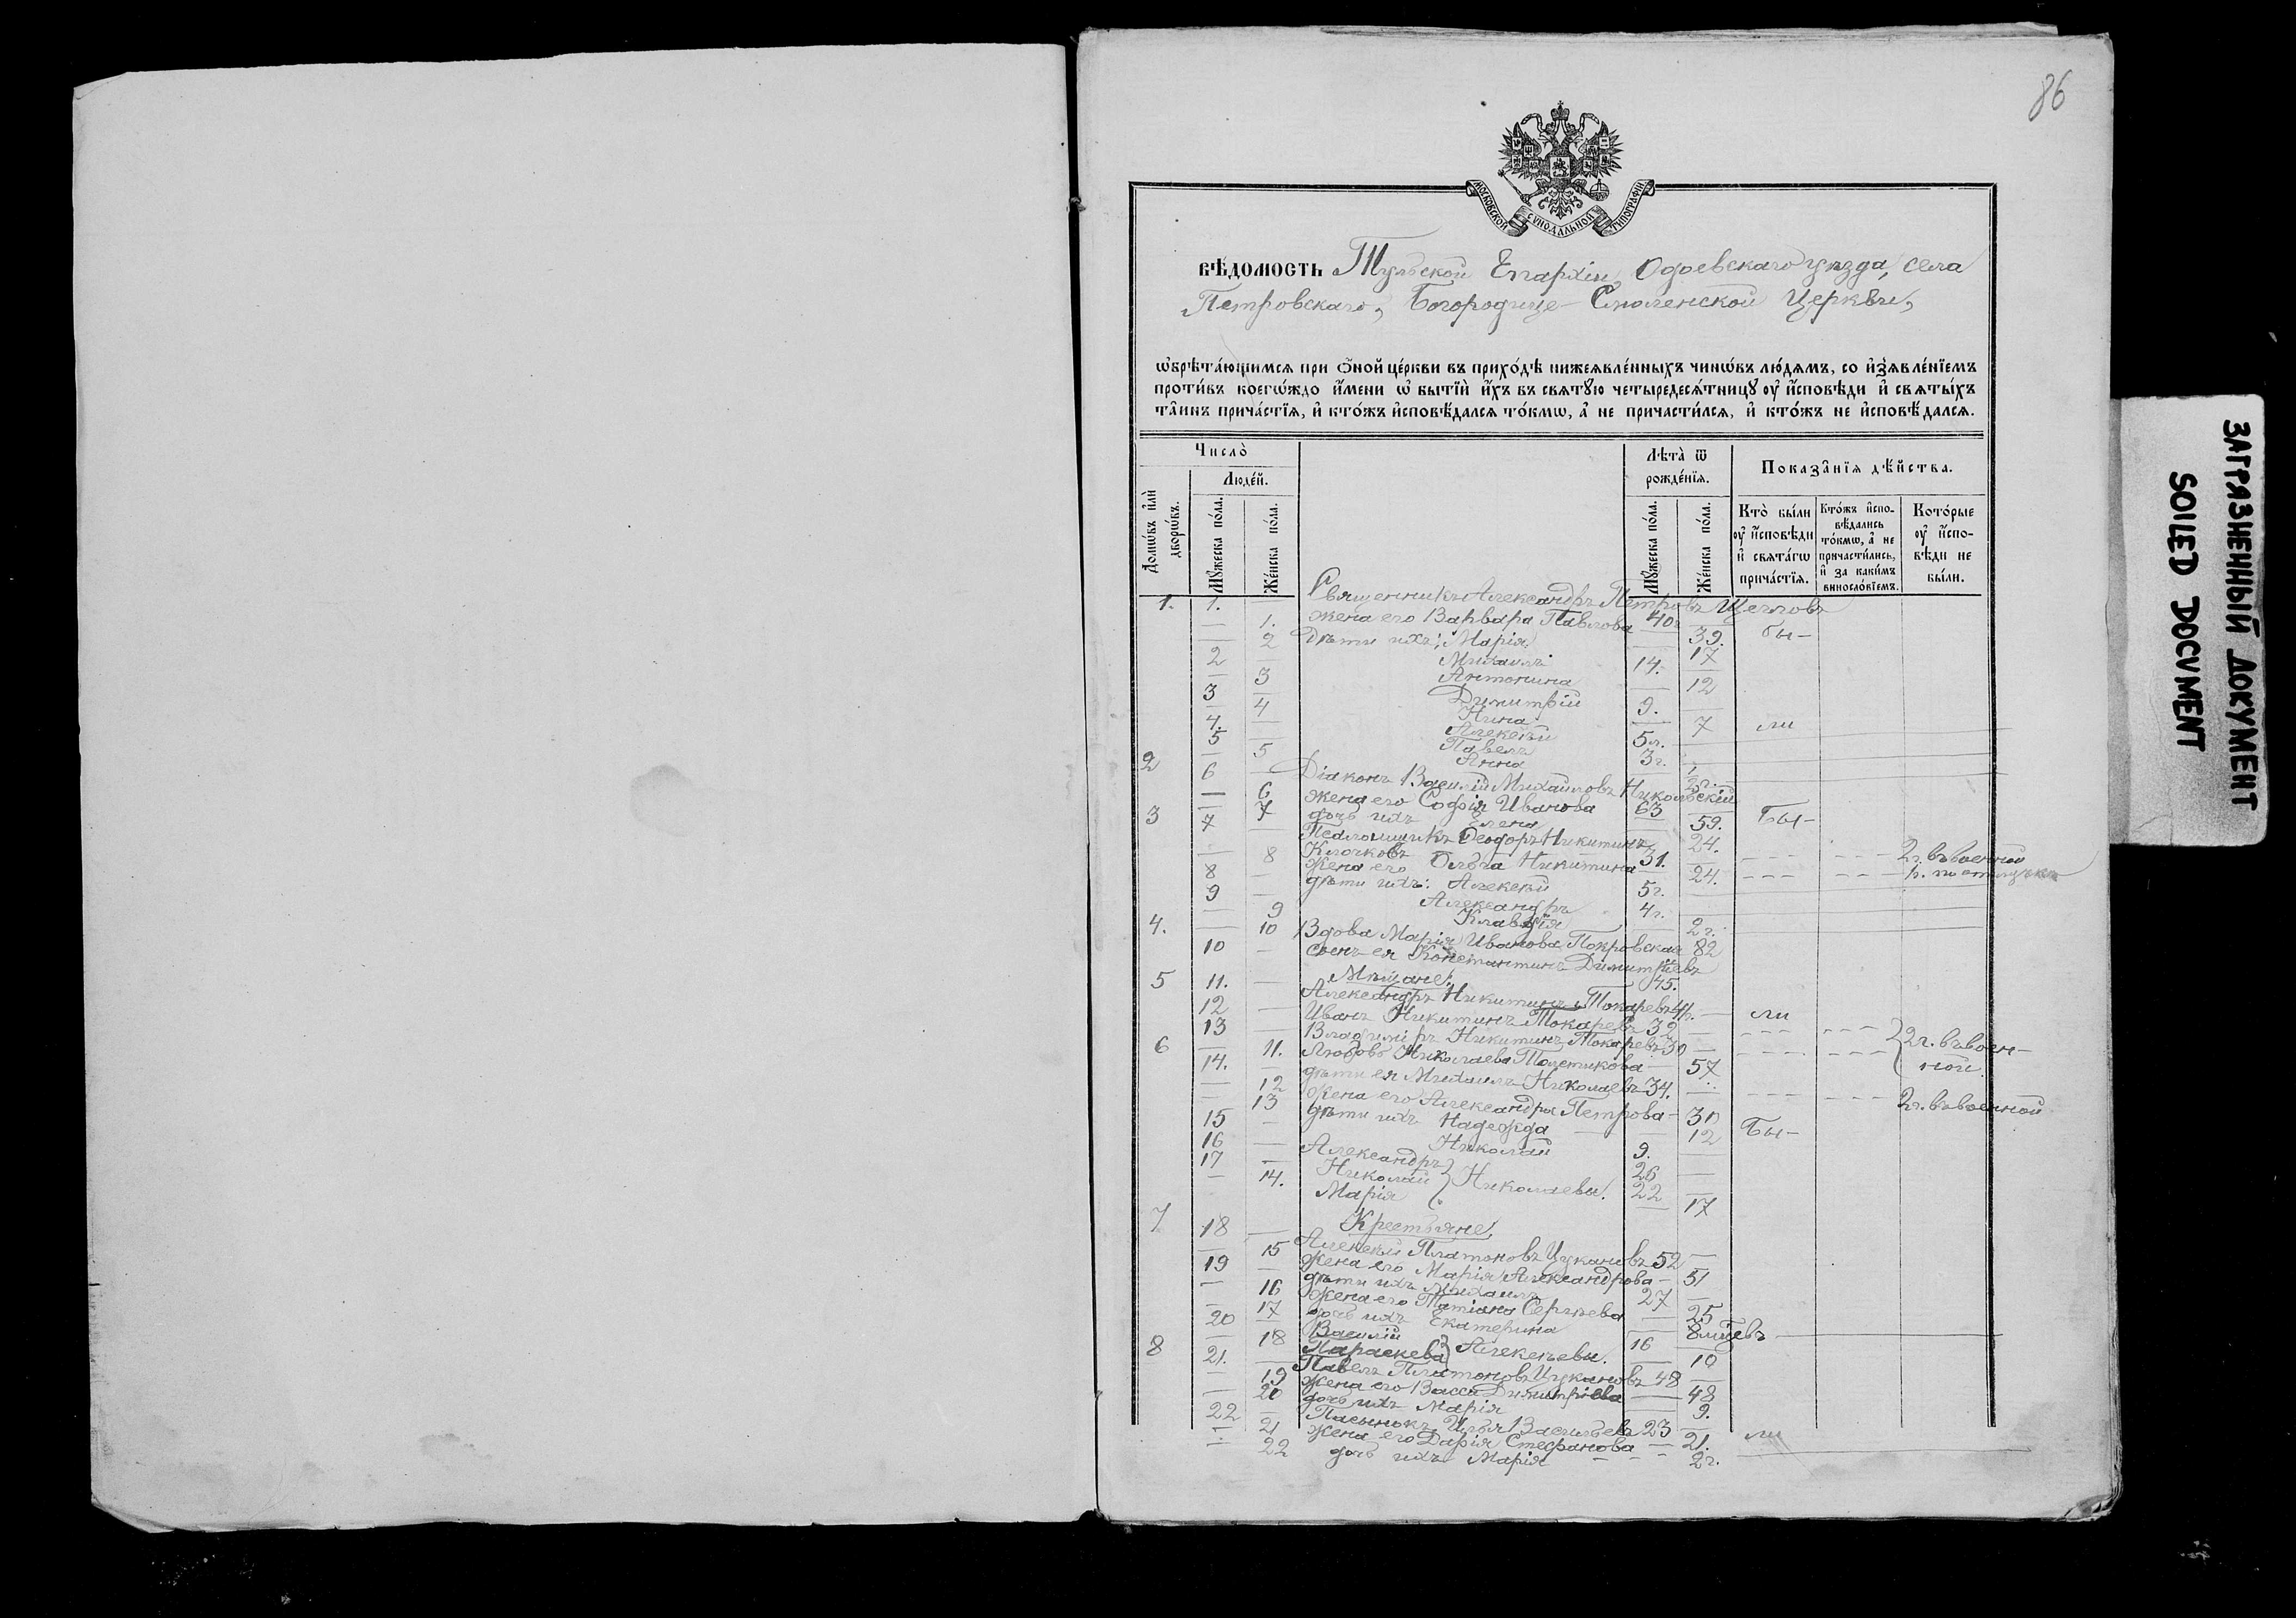 86
МОСКОВСКОЙ СѴНОДАЛЬНОЙ ТИПОГРАФІИ
ВѢДОМОСТЬ Тульской Епархіи, Одоевскаго уѣзда, села
Петровскаго, Богородице-Смоленской Церкви,
ѡбрѣта́ющимся при ѻ҆́ной це́ркви въ прихо́дѣ нижеявле́нныхъ чинѡ́въ лю́демъ, со и҆з̾явле́нїемъ
проти́въ коегѡ́ждо и҆́мени ѡ҆ бытїѝ и҆́хъ въ святꙋ́ю четыредеся́тницꙋ оу҆ и҆́сповѣди и҆ святы́хъ
та̂инъ прича́стїя, и҆ кто́жъ и҆сповѣ́дался то́кмѡ, а҆ не причасти́лся, и҆ кто́жъ не и҆сповѣ́дался.
Число̀
Людéй.
Домѡ́въ и҆лѝ дворѡ́въ.
Мꙋ́жеска по́ла.
Же́нска по́ла.
Лѣ́та ѿ рожде́нїя.
Мꙋ́жеска по́ла.
Же́нска по́ла.
Показа̂нїя дѣ́йства.
Кто̀ бы́ли оу҆ и҆́сповѣди и҆ свята́гѡ прича́стїя.
Кто́жъ и҆спо-вѣ́дались то́кмѡ, а҆ не причасти́лись, и҆ за каки́мъ виносло́вїемъ.
Кото́рые оу҆ и҆́спо-вѣди не бы́ли.
1. 1. — Священникъ Александръ Петровъ Щегловъ 40
— 1. жена его Варвара Павлова — 39. бы-
— 2 дѣти ихъ: Марія — 17
2 — Михаилъ 14. —
— 3 Антонина — 12
3 — Димитрій 9. —
— 4 Нина — 7 ли
4. — Алексѣй 5л. —
5 — Павелъ 3г. —
— 5 Анна — 2г.
2 6 — Діаконъ Василій Михайловъ Никольскій 63
— 6 жена его Софія Ивановa — 59. Бы-
— 7 дочь ихъ Елена — 24.
3 7 — Псаломщикъ Ѳеодоръ Никитинъ
Клочковъ 31. — 2г. въ военной
— 8 Жена его Ольга Никитина — 24.
8 — дѣти ихъ: Алексѣй 5г. —
9 — Александръ 4г. —
— 9 Клавдія — 2г.
4. — 10 Вдова Марія Иванова Покровская 82
10 — сынъ ея Константинъ Димитріевъ 45.
Мѣщане:
5 11. — Александръ Никитинъ Токаревъ — ли
12 — Иванъ Никитинъ Токаревъ 32 —
13 — Владиміръ Никитинъ Токаревъ 30 — 2г. въ воен-
ной
6 — 11. Любовь Николаева — 57
14. — дѣти ея Михаилъ Николаевъ 34. — 2г. въ военной
— 12 Жена его Александра Петрова — 30
— 13 дѣти ихъ Надежда — 12 Бы-
15 — Николай 9. —
16 — Александръ 26 —
17 — Николай } Николаевы. 22 —
— 14. Марія — 17
Крестьяне
7 18 — Алексѣй Платоновъ Цукановъ 52 —
— 15 Жена его Марія Александрова — 51
19 — дѣти ихъ Михаилъ 27 —
— 16 Жена его Татіана Сергѣева — 25
— 17 дочь ихъ Екатерина — 8 мцевъ
20 — Василій 16
— 18 Параскева } Алексѣевы. — 10
8 21. — Павелъ Платоновъ Цукановъ 48 —
— 19 Жена его Васса Димитріева — 48
— 20 дочь ихъ Марія — 9.
22 — Пасынокъ Илья Васильевъ 23 —
— 21 Жена его Дарія Стефанова — 21. ли
— 22 дочь ихъ Марія — 2г.
ЗАГРЯЗНЕННЫЙ ДОКУМЕНТ
SOILED DOCUMENT